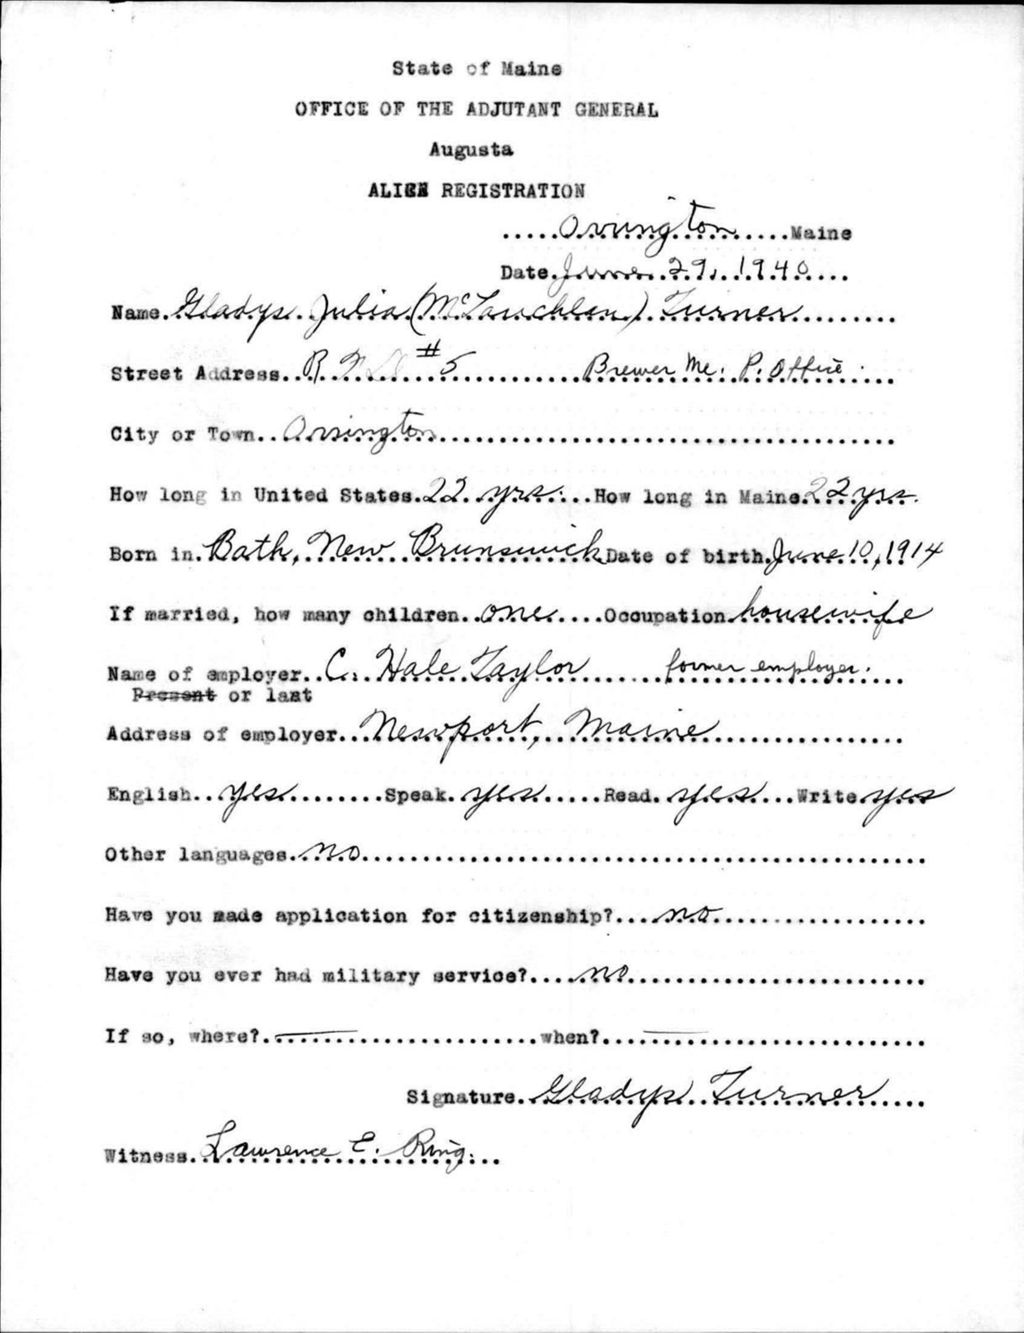 State of Maine
OFFICE OF THE ADJUTANT GENERAL
Augusta
ALIEN REGISTRATION
.....Orrington.....Maine
Date.June 29, 1940....
Name.Gladys Julia (McLauchlan) Turner........
Street Address..R F D #5............Brewer Me. P. Office....
City or Town..Orrington........................................
How long in United States.22 yrs....How long in Maine.22 yrs.
Born in.Bath, New Brunswick Date of birth.June 10, 1914
If married, how many children..one....Occupation.housewife
Name of employer..C. Hale Taylor.......former employer...
Present or last
Address of employer...Newport, Maine.................
English...yes.........Speak.yes.....Read.yes....Write.yes
Other languages..no..............................................
Have you made application for citizenship?....no..................
Have you ever had military service?.....no.........................
If so, where?.—......................when?....—......................
Signature.Gladys Turner....
Witness.Lawrence E. Ring...